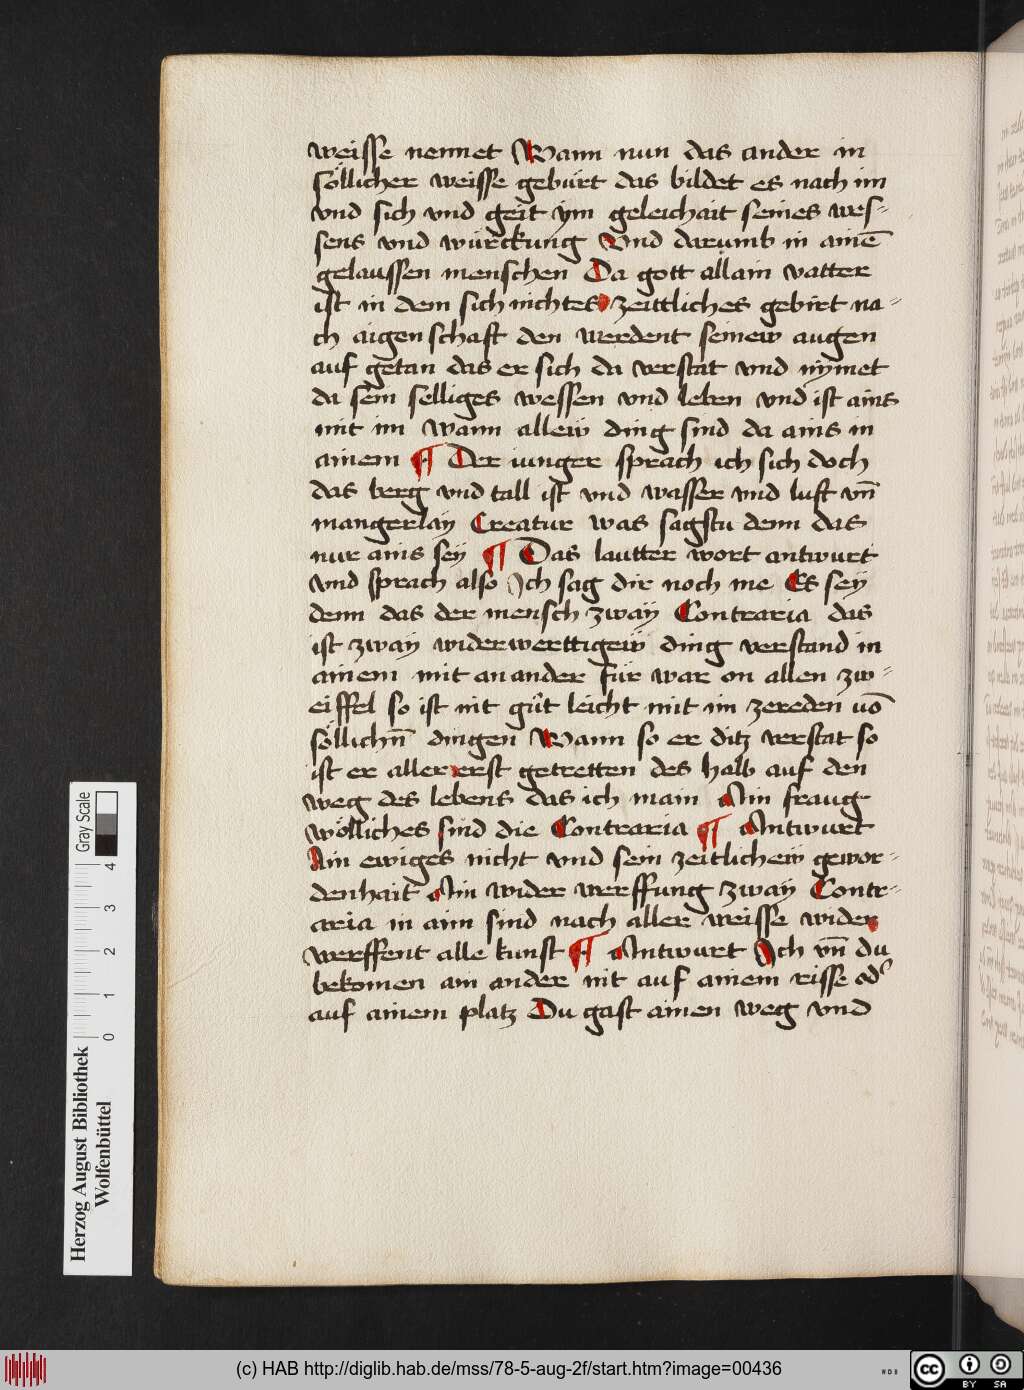 weisse nennet Wann nun das ander in
söllicher weisse gebürt das bildet es nach im
vnd sich vnd geit ÿm geleichait seines wes-
sens vnd würckung Vnd darumb in ainē
gelaussen menschen Da gott allain vatter
ist in dem sich nichtes zeittliches gebirt na-
ch aigenschaft den werdent seinew augen
auf getan das er sich da verstat vnd nÿmet
da sein selliges wessen vnd leben vnd ist ains
mit im wann allew ding sind da ains in
ainem ¶ Der iunger sprach ich sich doch
das berg vnd tall ist vnd wasser vnd luft vn̄
mangerlaÿ Creatur was sagstu denn das
nur ains seÿ ¶ Das lautter wort antwurt
vnd sprach also Ich sag dir noch me Es seÿ
denn das der mensch zwaÿ Contraria das
ist zwaÿ widerwerttigew ding verstand in
ainem mit an ander für war on allen zw-
eiffel so ist nit gůt leicht mit im zereden uō
söllichn̄ dingen Wann so er ditz verstat so
ist er aller erst getretten des halb auf den
weg des lebens das ich main Ain fraug
wölliches sind die Contraria ¶ Antwurt
Ain ewiges nicht vnd sein zeitlichew gewor-
denhait Ain wider werffung zwaÿ Contr-
aria in aim sind nach aller weisse wider
werffent alle kunst ¶ Antwurt Ich vn̄ du
bekomen ain ander nit auf ainem risse od'
auf ainem platz Du gast ainen weg vnd
Herzog August Bibliothek
Wolfenbüttel
Gray Scale
0 1 2 3 4
(c) HAB http://diglib.hab.de/mss/78-5-aug-2f/start.htm?image=00436
WDB
cc BY SA